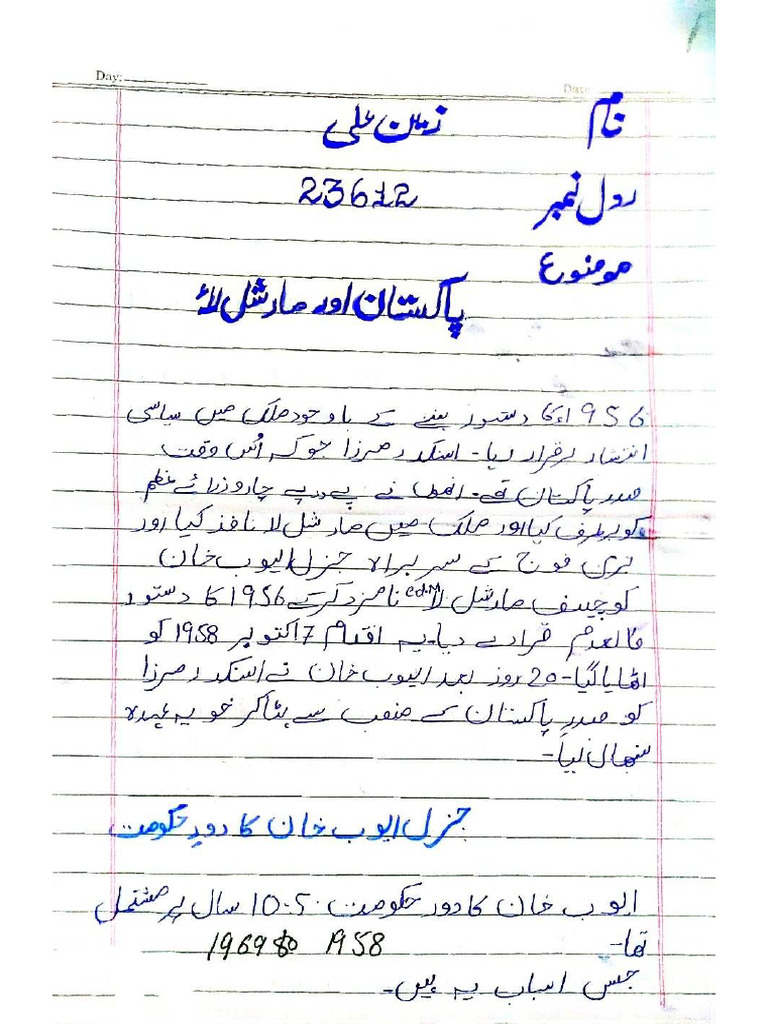 Day:
Date
نام زین علی
رول نمبر 23612
موضوع
پاکستان اور مارشل لاء
1956ء کا دستور بننے کے باوجود ملک میں سیاسی
انتشار برقرار رہا۔ اسکندر مرزا جو کہ اُس وقت
صدر پاکستان تھے۔ انھوں نے پے درپے چار وزرائے عظم
کو برطرف کیا اور ملک میں مارشل لا نافذ کیا اور
بری فوج کے سربراہ جنرل ایوب خان
کو چیف مارشل لا ed.M نامزد کرکے 1956 کا دستور
کالعدم قرار دے دیا۔ یہ اقدام 7 اکتوبر 1958 کو
اٹھایا گیا۔ 20 روز بعد ایوب خان نے اسکندر مرزا
کو صدر پاکستان کے منصب سے ہٹا کر خو یہ عہدہ
سنبھال لیا۔
جنرل ایوب خان کا دورِ حکومت
ایوب خان کا دور حکومت 10.5 سال پر مشتمل
تھا۔ 1958 to 1969
جس اسباب یہ ہیں۔